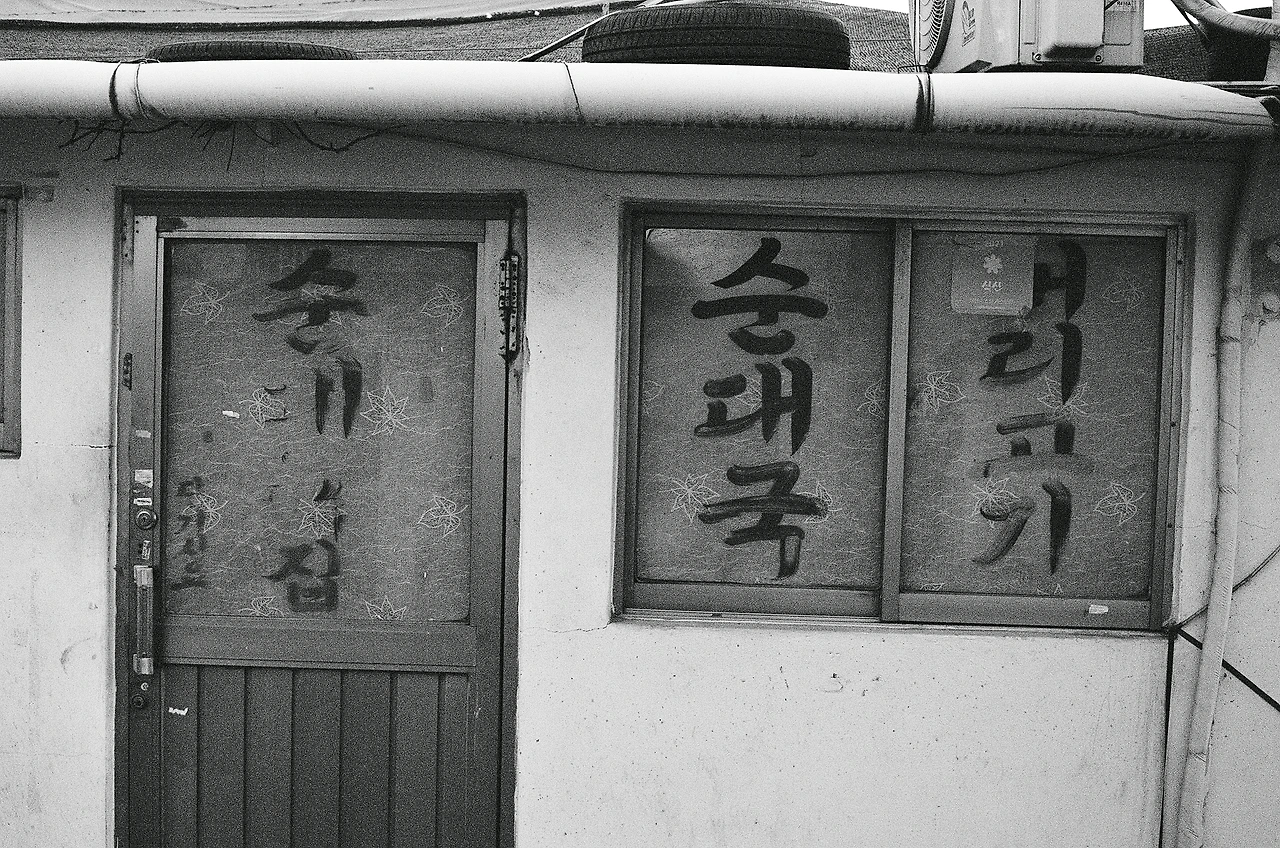 순대
집
순대국
머리고기
2021